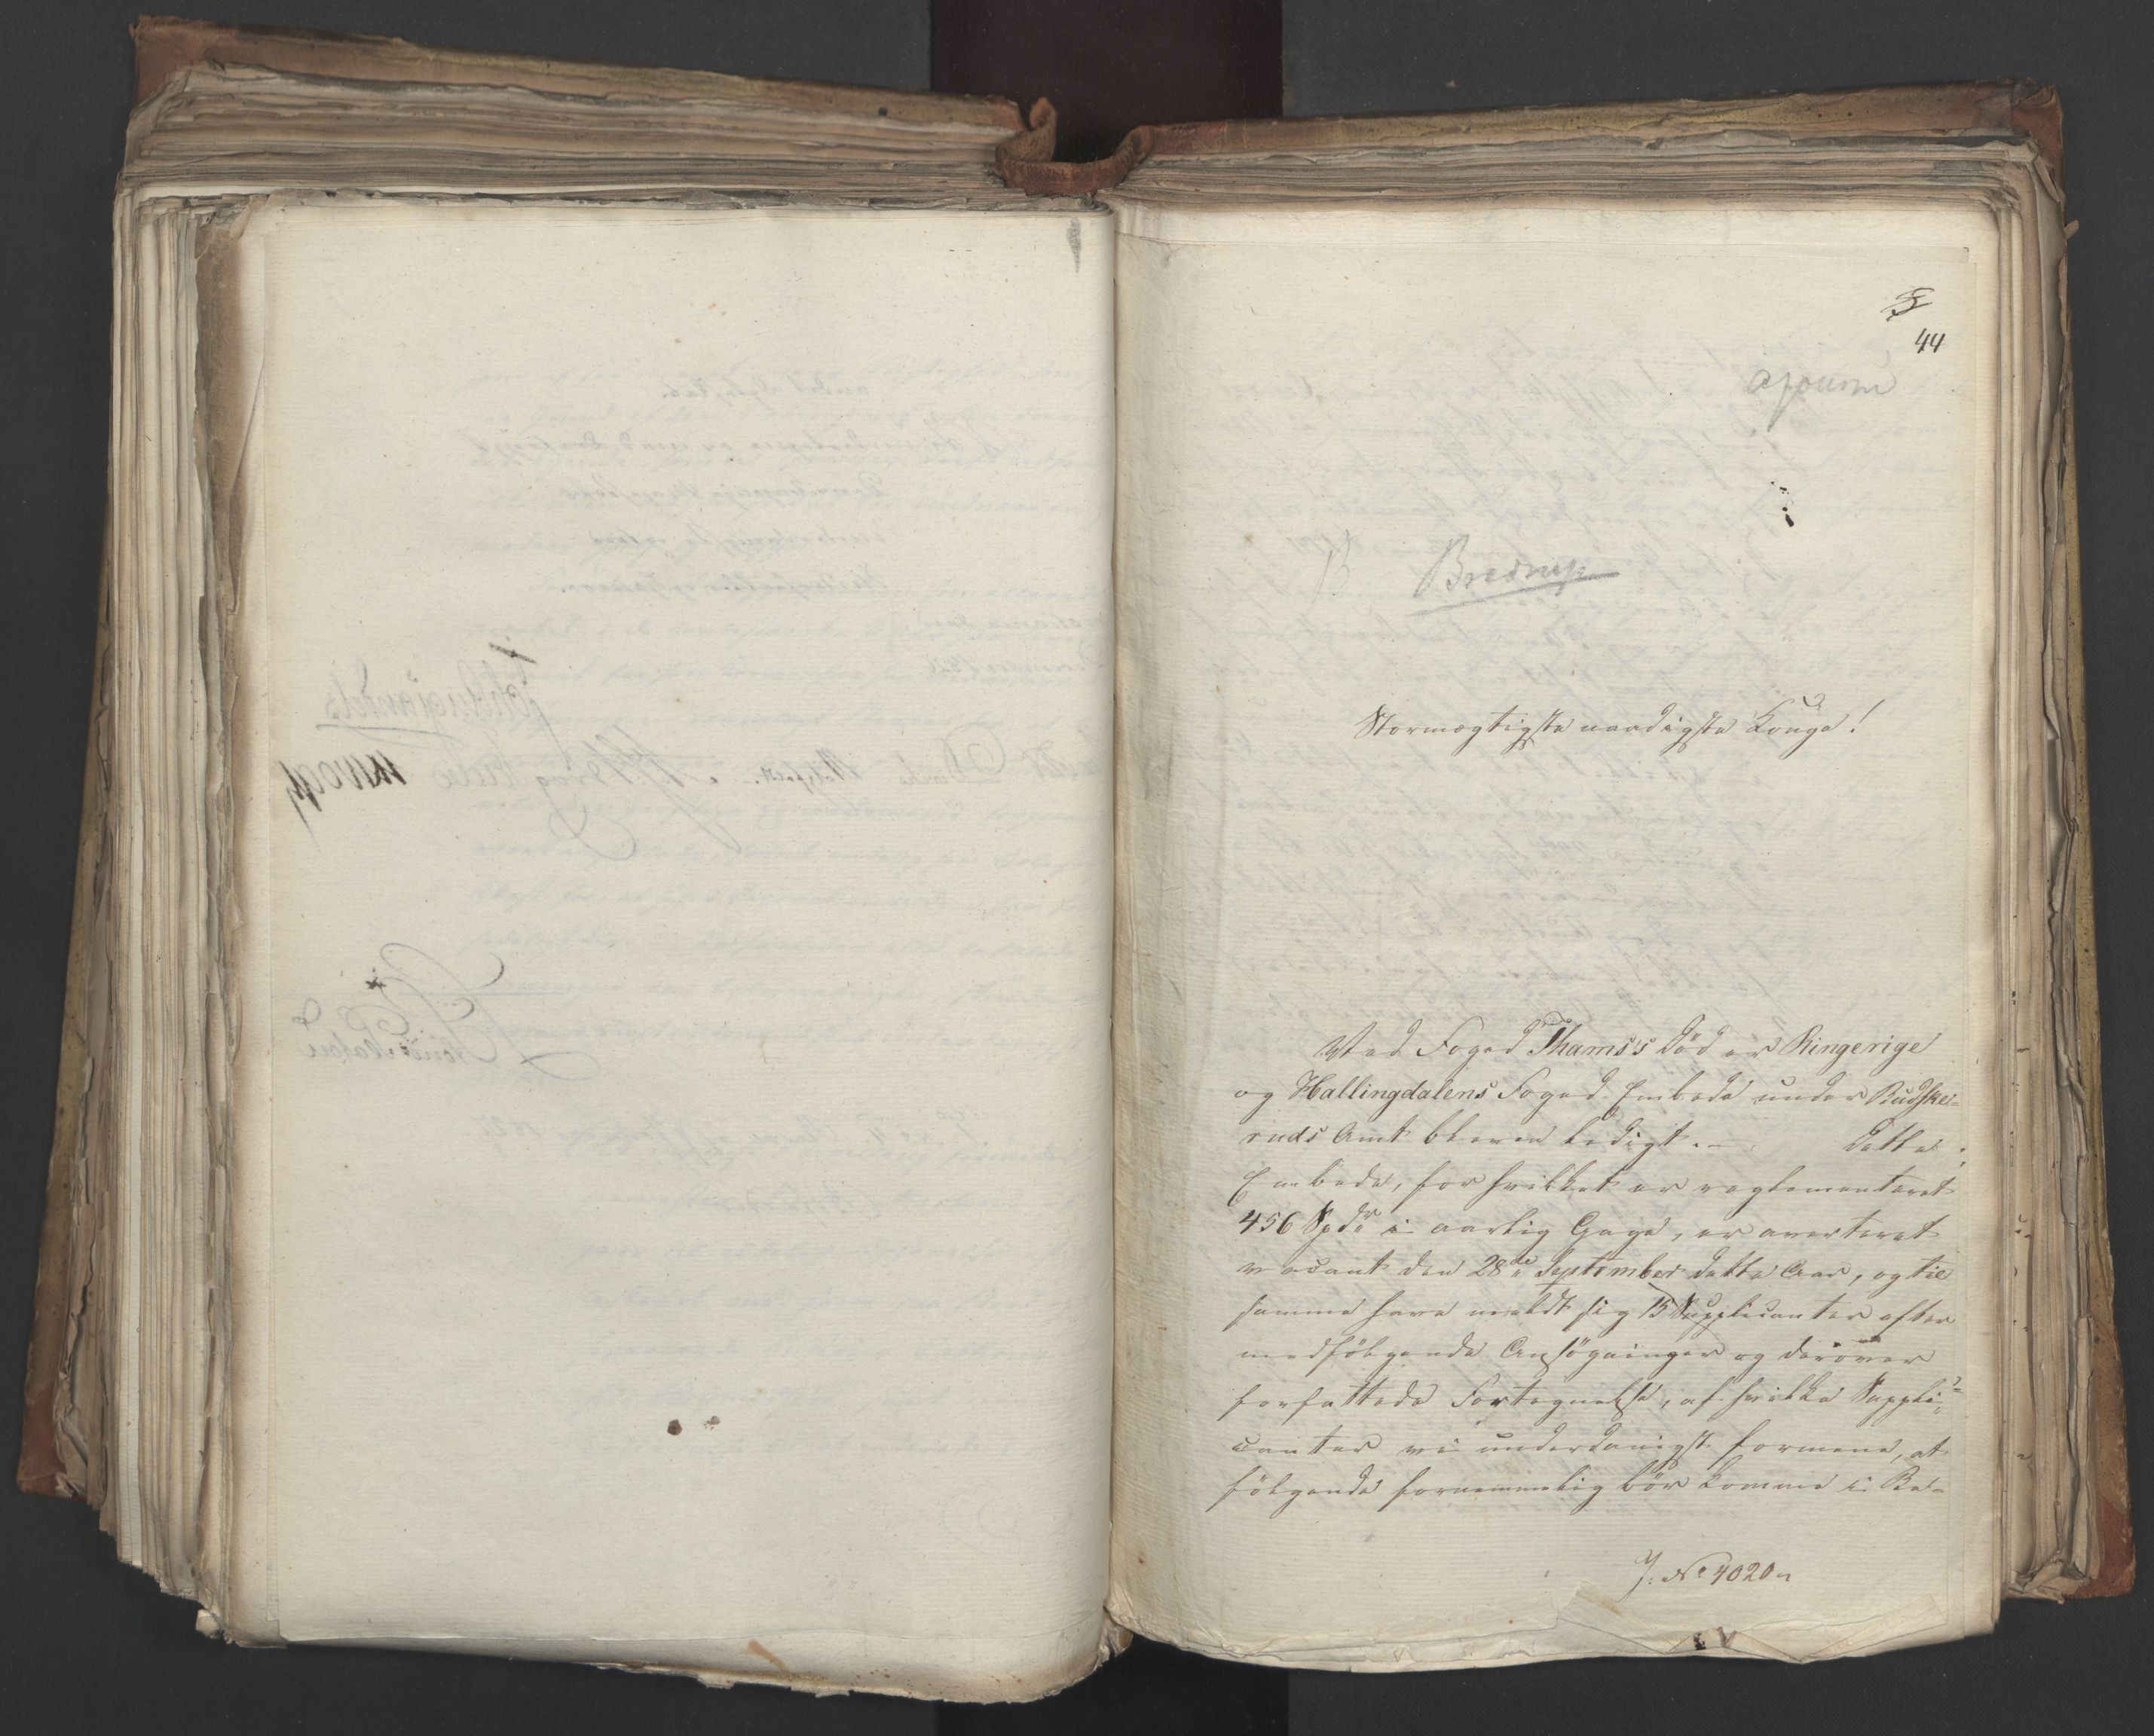 44
Bredrup
Stormægtigste naadigste Konge!
Ved Foged Thams's Död er Ringerige
og Hallingdalens Foged-Embede under Budske-
ruds Amt bleven ledigt. — Dette
Embede, for hvilket er reglementeret
456 Spdr i aarlig Gage, er averteret
vacant den 28de September dette Aar, og til
samme have meldt sig 15 Supplicanter efter
medfölgende Ansögninger og derover
forfattede Fortegnelse, af hvilke Suppli-
canter vi underdanigst formene, at
fölgende fornemmelig bör komme i Be-
J: No 4020